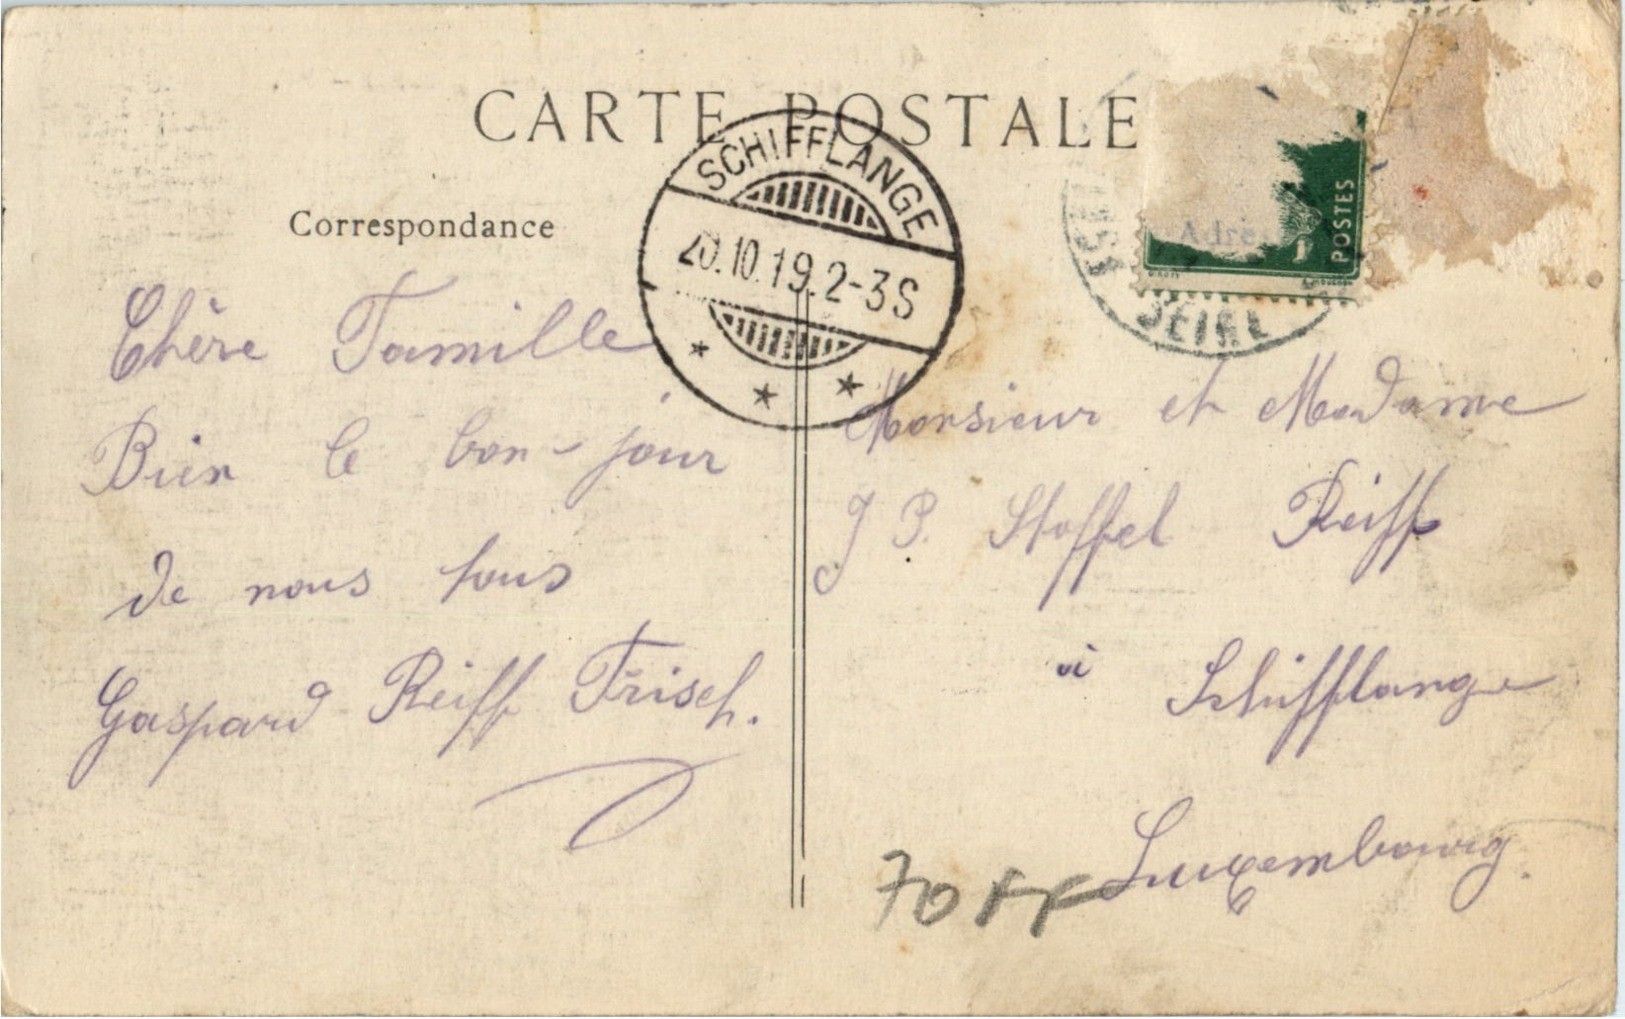 CARTE POSTALE
SCHIFFLANGE
20.10.19.2-3S
Correspondance
Adres
1
POSTES
Chère Famille
Bien le bon-jour
de nous tous
Gaspard Reiff Frisch.
Monsieur et Madame
J P. Stoffel Reiff
à Schifflange
Luxembourg